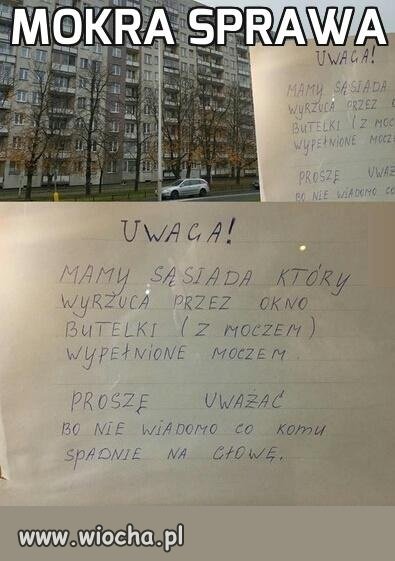 MOKRA SPRAWA
UWAGA!
MAMY SĄSIADA
WYRZUCA PRZEZ O
BUTELKI (Z MOCZ
WYPEŁNIONE MOCZE
PROSZĘ UWAŻ
BO NIE WIADOMO CO
UWAGA!
MAMY SĄSIADA KTÓRY
WYRZUCA PRZEZ OKNO
BUTELKI (Z MOCZEM)
WYPEŁNIONE MOCZEM.
PROSZĘ UWAŻAĆ
BO NIE WIADOMO CO KOMU
SPADNIE NA GŁOWĘ.
www.wiocha.pl